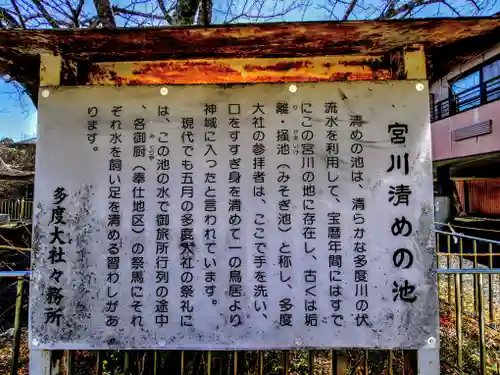 宮川清めの池
清めの池は、清らかな多度川の伏
流水を利用して、宝暦年間にはすで
にこの宮川の地に存在し、古くは垢
離・掻池（みそぎ池）と称し、多度
大社の参拝者は、ここで手を洗い、
口をすすぎ身を清めて一の鳥居より
神域に入ったと言われています。
現代でも五月の多度大社の祭礼に
は、この池の水で御旅所行列の途中
、各御厨（奉仕地区）の祭馬にそれ
ぞれ水を飼い足を清める習わしがあ
ります。
多度大社々務所